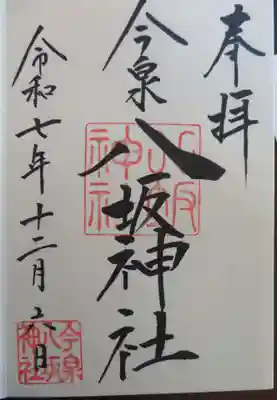 奉拝
今泉
八坂神社
令和七年十二月六日
八坂神社
今泉八坂神社